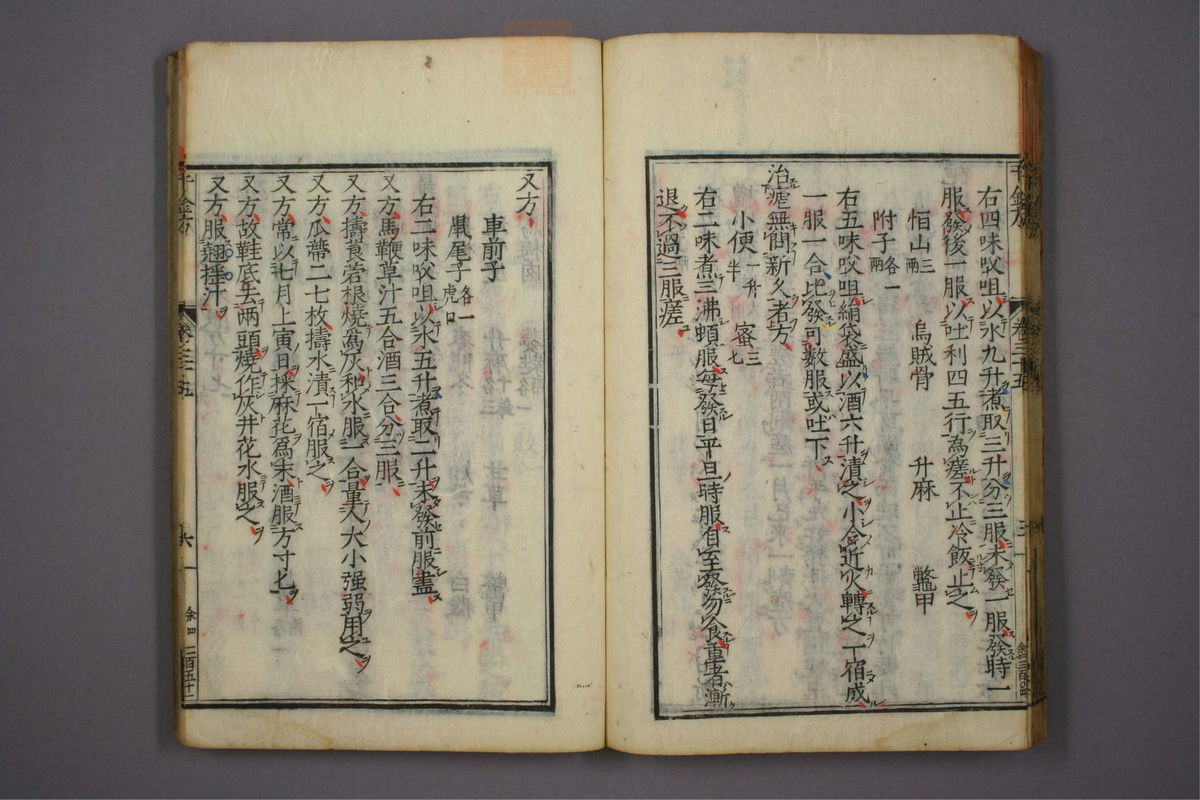 右四味㕮咀以水九升煮取三升分三服未發一服發時一
服發後一服以吐利四五行為瘥不止冷飯止之
恒山三兩 烏賊骨 升麻 鼈甲
附子各一兩
右五味㕮咀絹袋盛以酒六升漬之小令近火轉之一宿成
一服一合比發可數服或吐下
治瘧無問新久者方
小便一升半 蜜三七
右二味煮三沸頓服每發日平旦時服自至發勿食重者漸
退不過三服瘥
又方
車前子
鼠尾子各一虎口
右二味㕮咀以水五升煮取二升未發前服盡
又方馬鞭草汁五合酒三合分三服
又方擣莨菪根燒爲灰和水服一合量人大小强弱用之
又方瓜蔕二七枚擣水漬一宿服之
又方常以七月上寅日採麻花爲末酒服方寸匕
又方故鞋底去兩頭燒作灰井花水服之
又方服翹揺汁
千金方
卷三十五
六